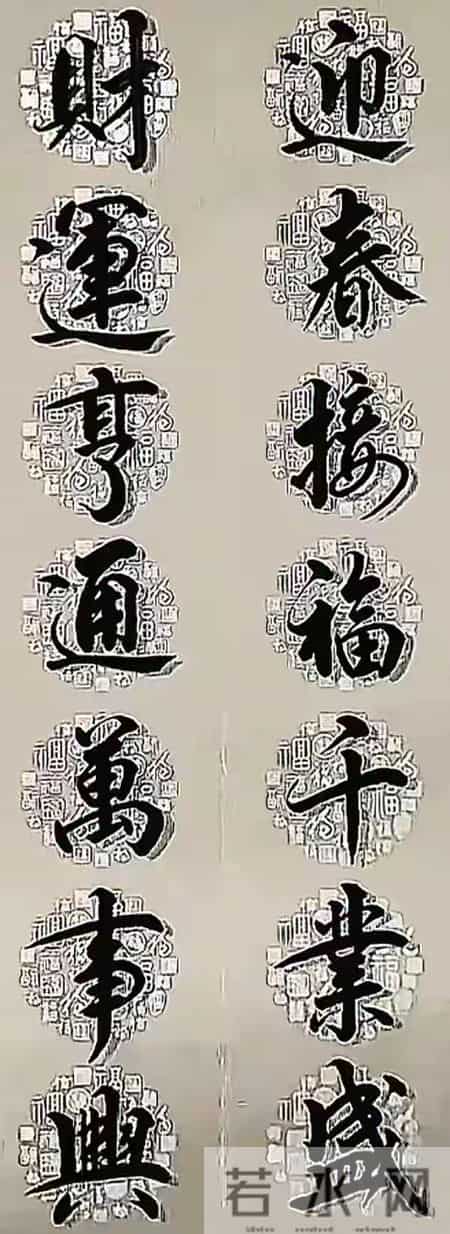 迎春接福千業盛
財運亨通萬事興
若水网